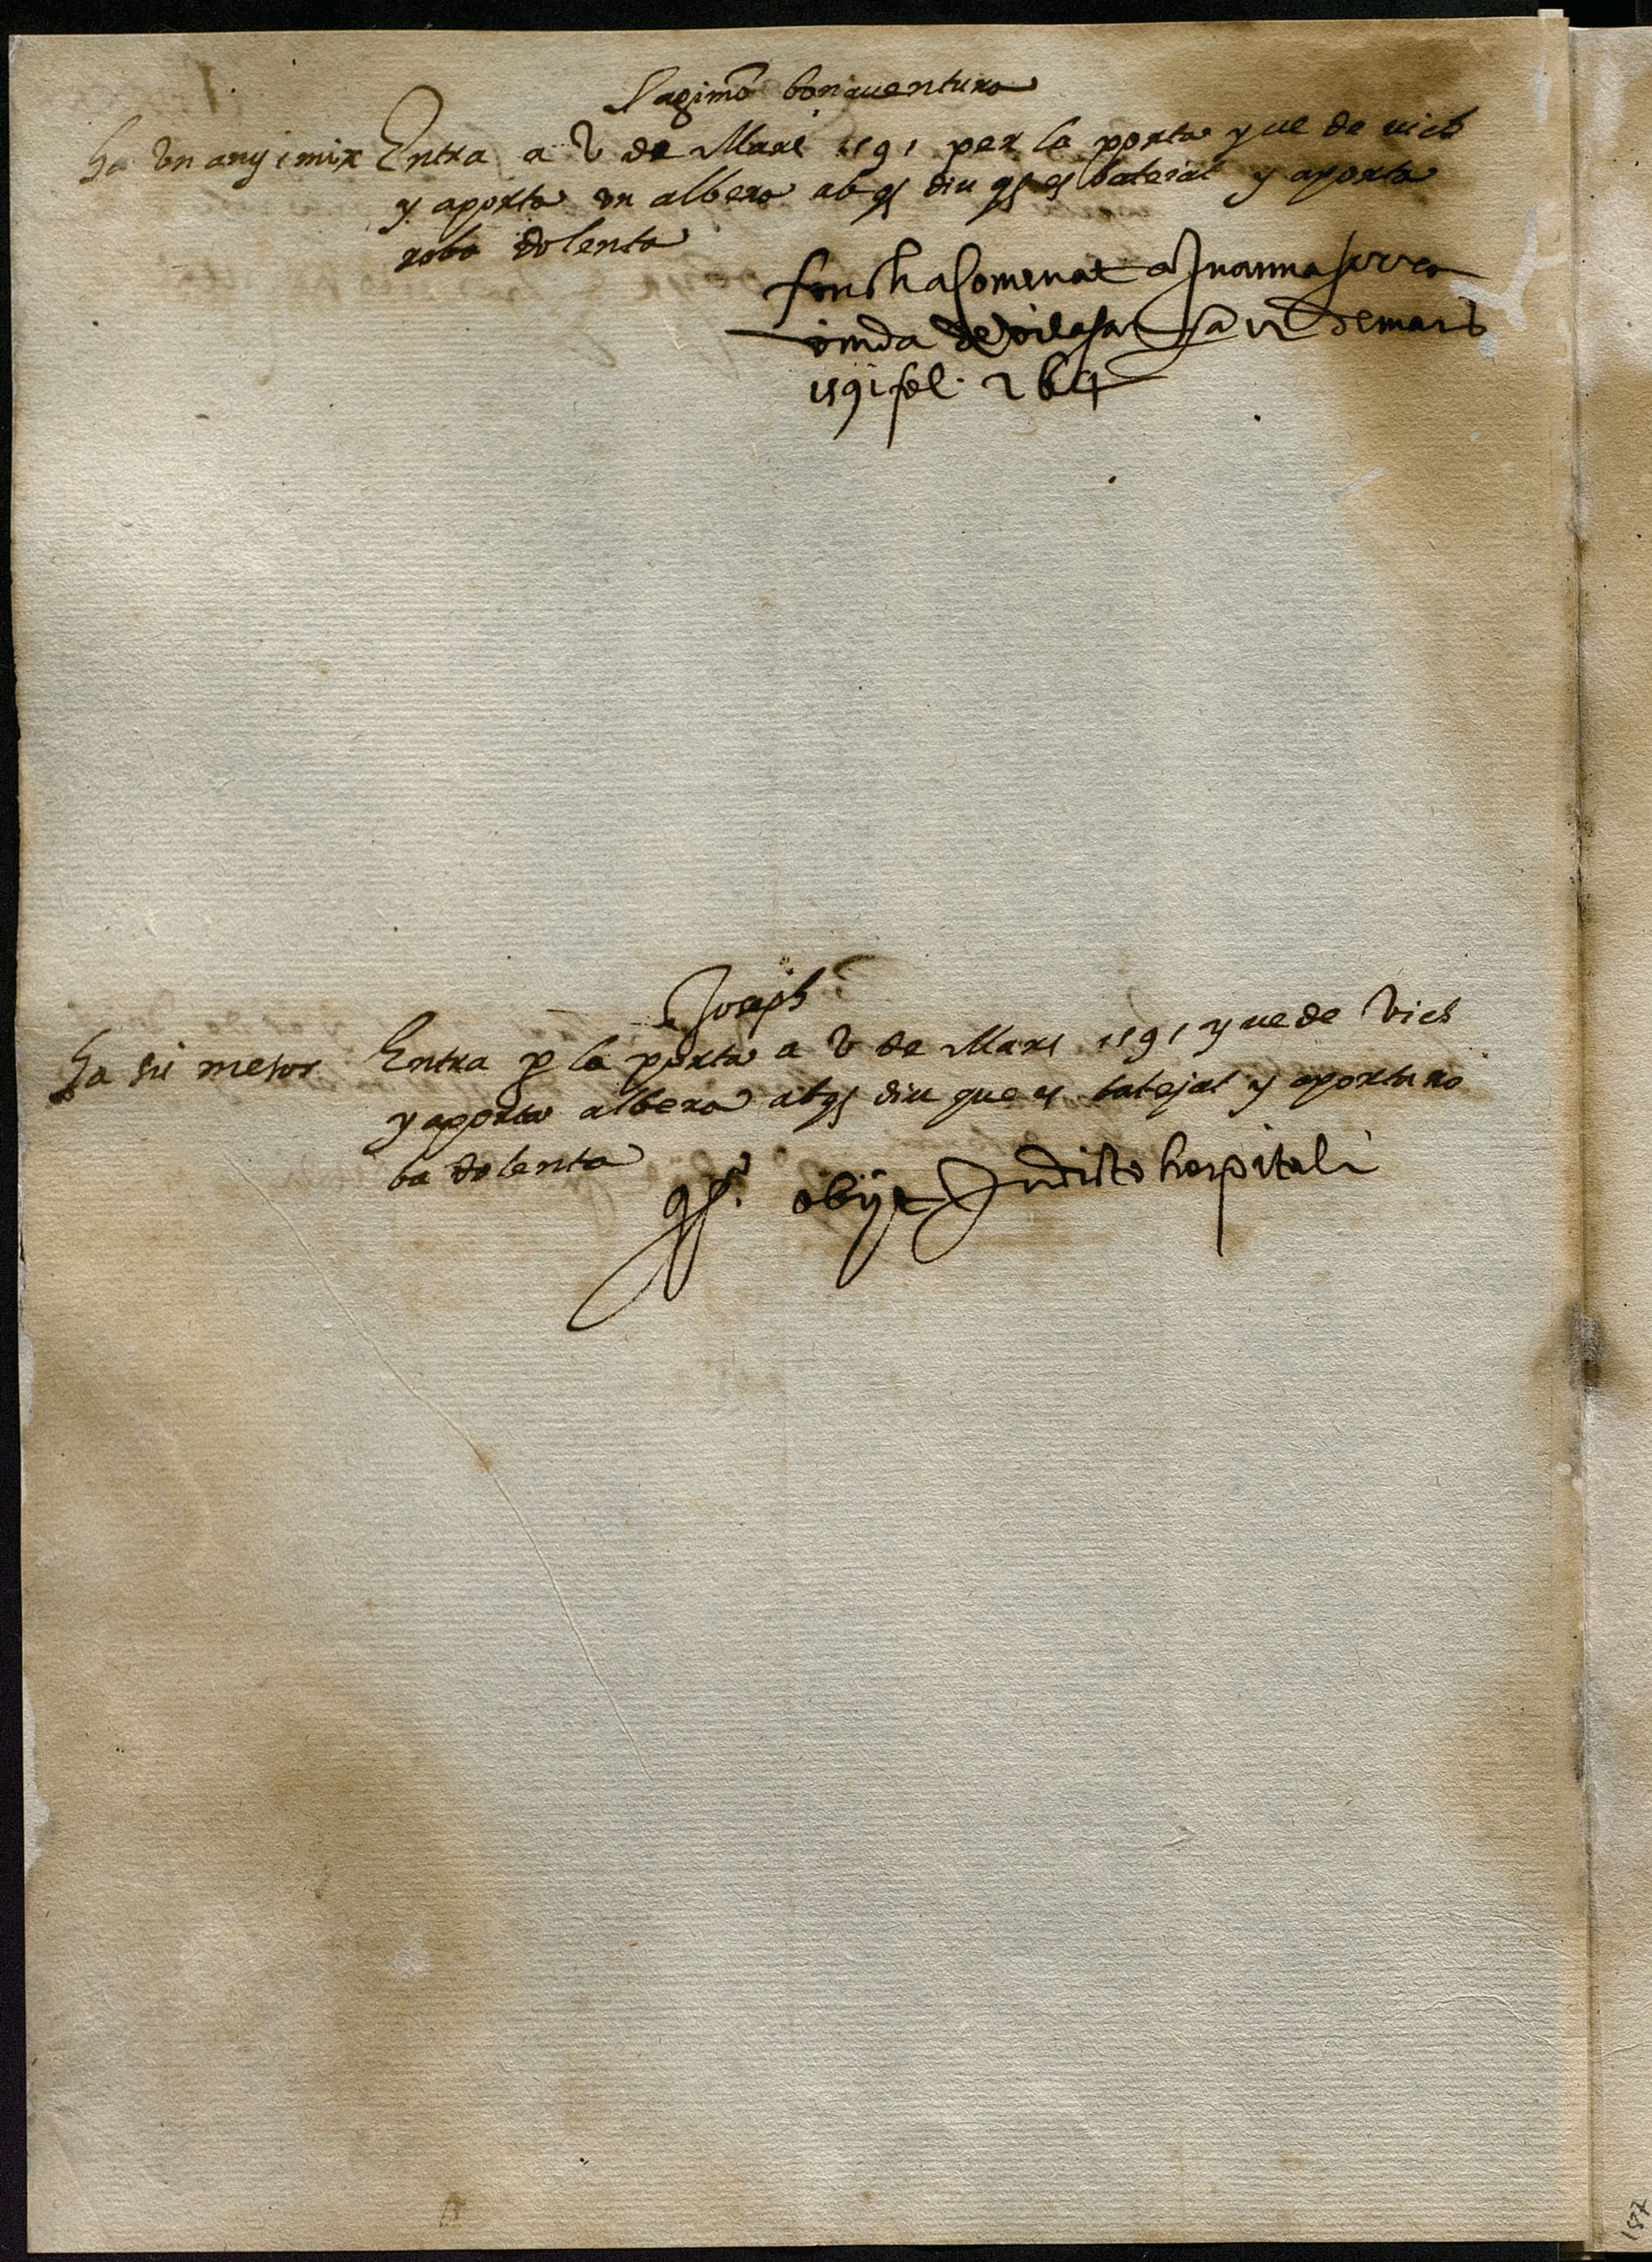 Sagimō bonauentura
ha vn any i mix Entra a v de Mars 1591 per la porta y ve de vich
y aporta vn albera ab q̄ diu q̄ es bateiat y aporta
roba dolenta
fonch acomenat a Juanna serra
viuda de vilasar a 12 de mars
1591 fol. 264
Joseph
ha sis mesos Entra p la porta a v de Mars 1591 y ve de Vich
y aporta albera ab q̄ diu que es batejat y aporta ro
ba dolenta
q̄s. obijt In dicto hospitali
187